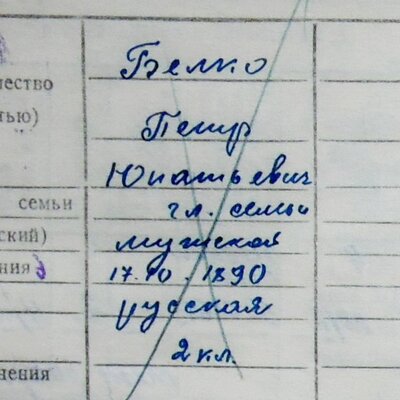 Белко
чество
тью)
Петр
Юнатьевич
семьи гл. семьи
ский) мужская
ния 17.10.1890
русская
2 кл.
нения